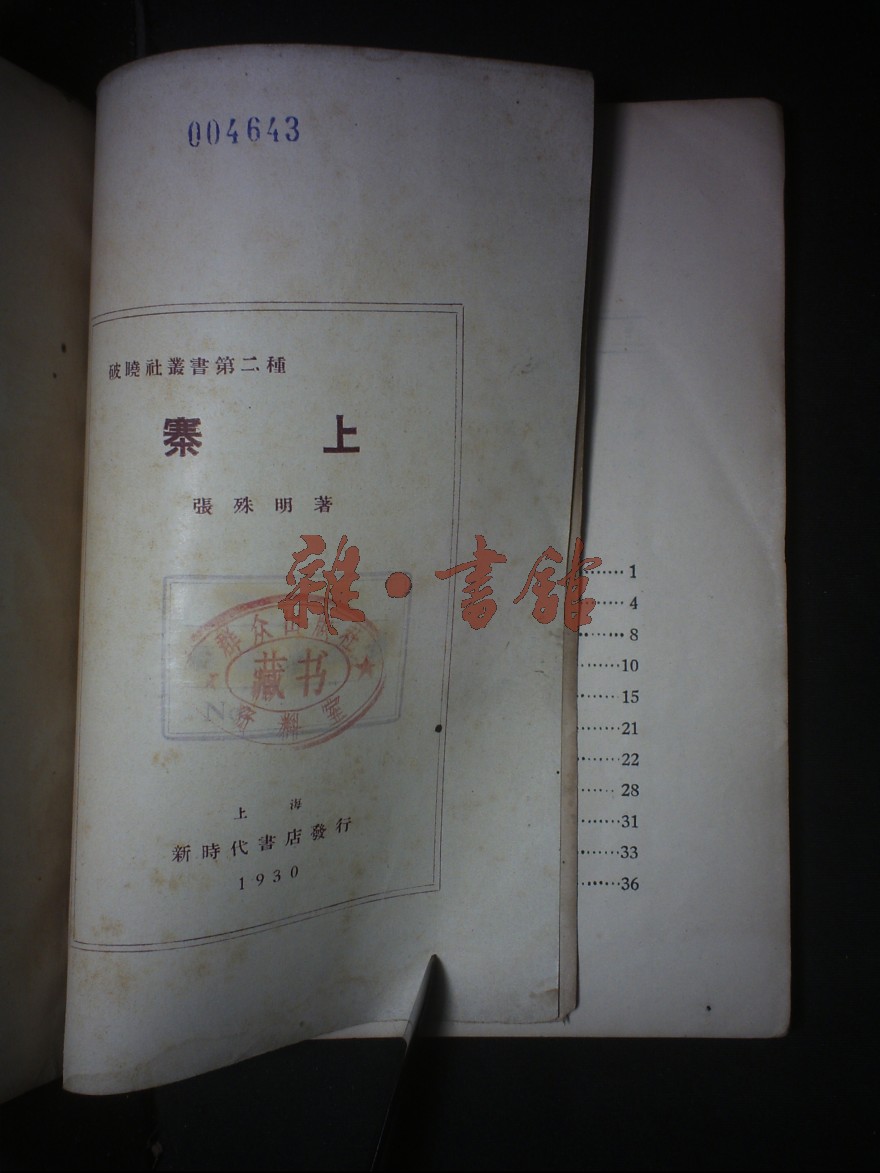 004643
破曉社叢書第二種
寨 上
張殊明著
雜·書館
群众出版社
藏书
资料室
上海
新時代書店發行
1930
········1
········4
········8
········10
········15
········21
········22
········28
········31
········33
········36